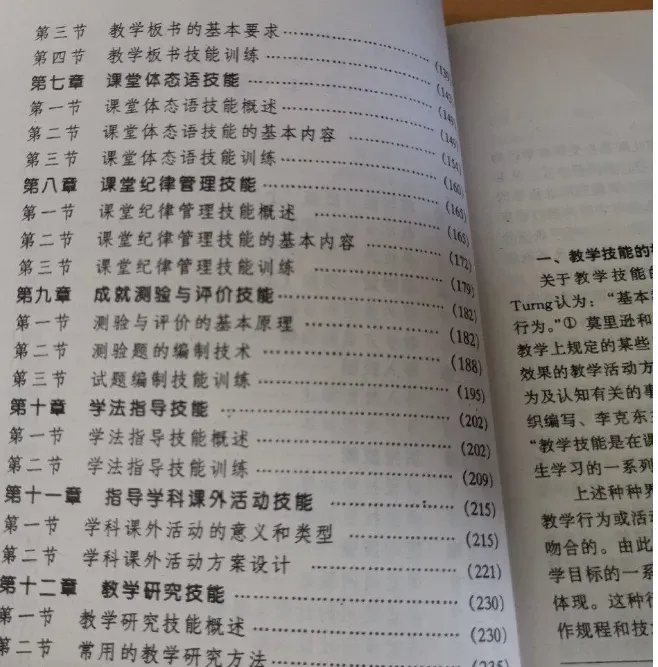 第三节 教学板书的基本要求
第四节 教学板书技能训练
第七章 课堂体态语技能
第一节 课堂体态语技能概述
第二节 课堂体态语技能的基本内容
第三节 课堂体态语技能训练 (160)
第八章 课堂纪律管理技能 (165)
第一节 课堂纪律管理技能概述 (165)
第二节 课堂纪律管理技能的基本内容 (172)
第三节 课堂纪律管理技能训练 (179)
第九章 成就测验与评价技能 (182)
第一节 测验与评价的基本原理 (182)
第二节 测验题的编制技术 (188)
第三节 试题编制技能训练 (195)
第十章 学法指导技能 (202)
第一节 学法指导技能概述 (202)
第二节 学法指导技能训练 (209)
第十一章 指导学科课外活动技能 (215)
第一节 学科课外活动的意义和类型 (215)
第二节 学科课外活动方案设计 (221)
第十二章 教学研究技能 (230)
第一节 教学研究技能概述 (230)
第二节 常用的教学研究方法
一、教学技能的
关于教学技能的
Turng认为：“基本
行为。”① 莫里逊和
教学上规定的某些
效果的教学活动方
为及认知有关的事
织编写、李克东
“教学技能是在课
生学习的一系列
上述种种界
教学行为或活动
吻合的。由此
学目标的一系
体现。这种行
作规程和技